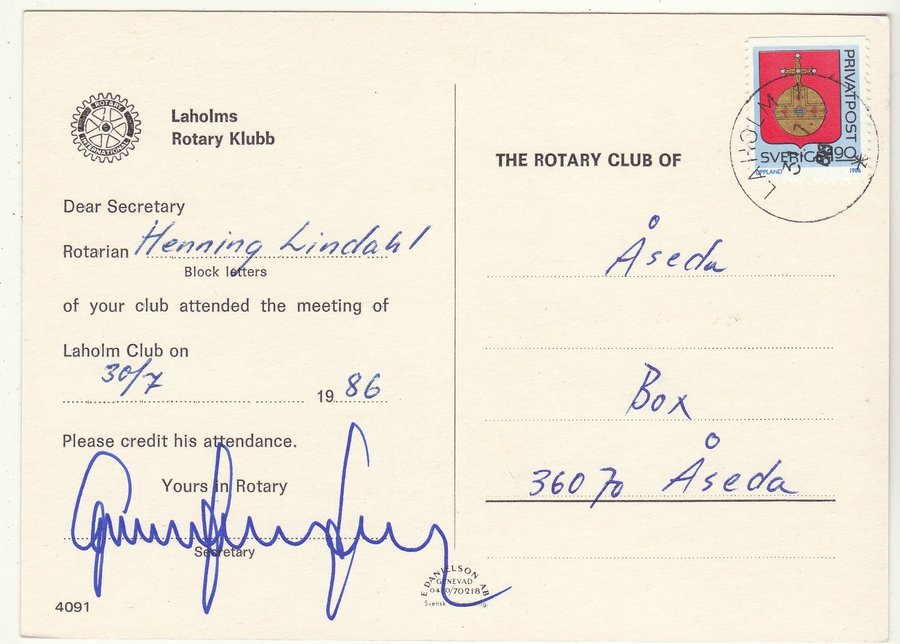 ROTARY
INTERNATIONAL
Laholms
Rotary Klubb
Dear Secretary
Rotarian Henning Lindahl
Block letters
of your club attended the meeting of
Laholm Club on
30/7 1986
Please credit his attendance.
Yours in Rotary
Secretary
4091
PRIVATPOST
SVERIGE 90
UPPLAND 1986
LAHOLM
THE ROTARY CLUB OF
Åseda
Box
36070 Åseda
E. DANIELSON AB
GENEVAD
0430/70218
Svensk